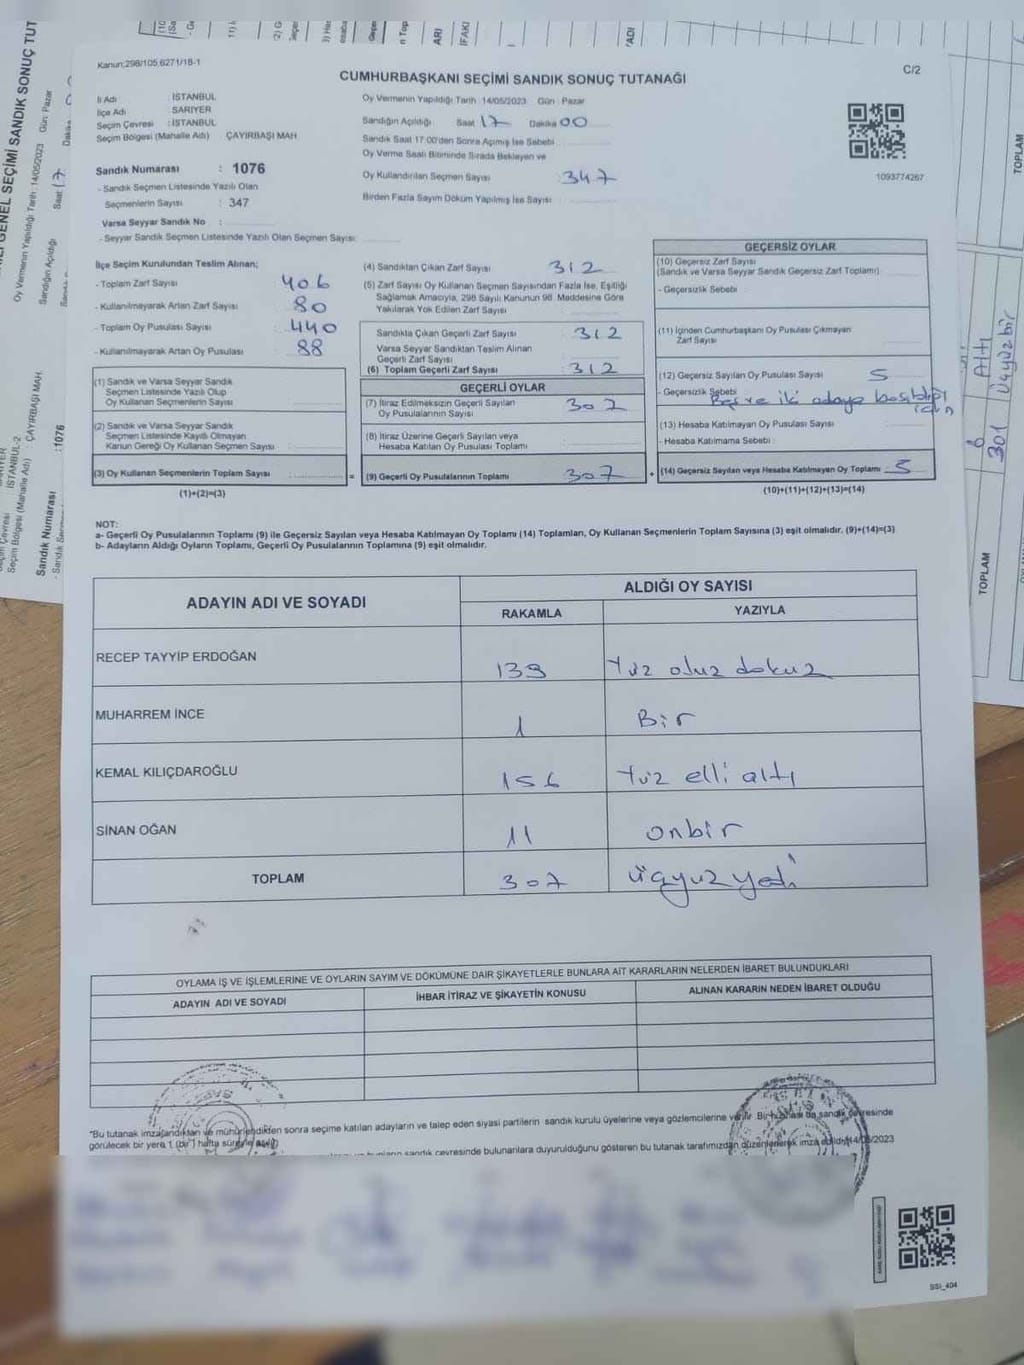 Kanun:298/105,6271/18-1
C/2
CUMHURBAŞKANI SEÇİMİ SANDIK SONUÇ TUTANAĞI
İl Adı : İSTANBUL
İlçe Adı : SARIYER
Seçim Çevresi : İSTANBUL
Seçim Bölgesi (Mahalle Adı) : ÇAYIRBAŞI MAH.
Sandık Numarası : 1076
- Sandık Seçmen Listesinde Yazılı Olan
Seçmenlerin Sayısı : 347
Varsa Seyyar Sandık No :
- Seyyar Sandık Seçmen Listesinde Yazılı Olan Seçmen Sayısı:
Oy Vermenin Yapıldığı Tarih : 14/05/2023 Gün : Pazar
Sandığın Açıldığı Saat 17 Dakika 00
Sandık Saat 17:00'den Sonra Açımış İse Sebebi
Oy Verme Saati Bitiminde Sırada Bekleyen ve
Oy Kullandırılan Seçmen Sayısı : 347
Birden Fazla Sayım Döküm Yapılmış İse Sayısı :
1093774267
İlçe Seçim Kurulundan Teslim Alınan;
- Toplam Zarf Sayısı : 406
- Kullanılmayarak Artan Zarf Sayısı : 80
- Toplam Oy Pusulası Sayısı : 440
- Kullanılmayarak Artan Oy Pusulası : 88
(1) Sandık ve Varsa Seyyar Sandık
Seçmen Listesinde Yazılı Olup
Oy Kullanan Seçmenlerin Sayısı :
(2) Sandık ve Varsa Seyyar Sandık
Seçmen Listesinde Kayıtlı Olmayan
Kanun Gereği Oy Kullanan Seçmen Sayısı :
(3) Oy Kullanan Seçmenlerin Toplam Sayısı :
(1)+(2)=(3)
(4) Sandıktan Çıkan Zarf Sayısı : 312
(5) Zarf Sayısı Oy Kullanan Seçmen Sayısından Fazla İse, Eşitliği
Sağlamak Amacıyla, 298 Sayılı Kanunun 98. Maddesine Göre
Yakılarak Yok Edilen Zarf Sayısı :
Sandıkta Çıkan Geçerli Zarf Sayısı : 312
Varsa Seyyar Sandıktan Teslim Alınan
Geçerli Zarf Sayısı :
(6) Toplam Geçerli Zarf Sayısı : 312
GEÇERLİ OYLAR
(7) İtiraz Edilmeksizin Geçerli Sayılan
Oy Pusulalarının Sayısı : 307
(8) İtiraz Üzerine Geçerli Sayılan veya
Hesaba Katılan Oy Pusulası Toplamı :
= (9) Geçerli Oy Pusulalarının Toplamı : 307 +
GEÇERSİZ OYLAR
(10) Geçersiz Zarf Sayısı
(Sandık ve Varsa Seyyar Sandık Geçersiz Zarf Toplamı)
- Geçersizlik Sebebi :
(11) İçinden Cumhurbaşkanı Oy Pusulası Çıkmayan
Zarf Sayısı :
(12) Geçersiz Sayılan Oy Pusulası Sayısı : 5
- Geçersizlik Sebebi : Beş ve iki adaya basıldığı
için
(13) Hesaba Katılmayan Oy Pusulası Sayısı :
- Hesaba Katımama Sebebi :
(14) Geçersiz Sayılan veya Hesaba Katılmayan Oy Toplamı : 5
(10)+(11)+(12)+(13)=(14)
NOT:
a- Geçerli Oy Pusulalarının Toplamı (9) ile Geçersiz Sayılan veya Hesaba Katılmayan Oy Toplamı (14) Toplamları, Oy Kullanan Seçmenlerin Toplam Sayısına (3) eşit olmalıdır. (9)+(14)=(3)
b- Adayların Aldığı Oyların Toplamı, Geçerli Oy Pusulalarının Toplamına (9) eşit olmalıdır.
ADAYIN ADI VE SOYADI
ALDIĞI OY SAYISI
RAKAMLA YAZIYLA
RECEP TAYYİP ERDOĞAN 139 Yüz otuz dokuz
MUHARREM İNCE 1 Bir
KEMAL KILIÇDAROĞLU 156 Yüz elli altı
SİNAN OĞAN 11 onbir
TOPLAM 307 üçyüz yedi
OYLAMA İŞ VE İŞLEMLERİNE VE OYLARIN SAYIM VE DÖKÜMÜNE DAİR ŞİKAYETLERLE BUNLARA AİT KARARLARIN NELERDEN İBARET BULUNDUKLARI
ADAYIN ADI VE SOYADI İHBAR İTİRAZ VE ŞİKAYETİN KONUSU ALINAN KARARIN NEDEN İBARET OLDUĞU
"Bu tutanak imzalandıktan ve mühürlendikten sonra seçime katılan adayların ve talep eden siyasi partilerin sandık kurulu üyelerine veya gözlemcilerine verilir. Bir nüshası da sandık çevresinde
görülecek bir yere 1 (bir) hafta süreyle asılır)
sandık çevresinde bulunanlara duyurulduğunu gösteren bu tutanak tarafımızdan düzenlenerek imza edildi.14/05/2023
SSI_404
GENEL SEÇİMİ SANDIK SONUÇ TUT
Oy Vermenin Yapıldığı Tarih : 14/05/2023 Gün: Pazar
Sandığın Açıldığı Saat 17 Dakika
İSTANBUL-2
Seçim Bölgesi (Mahalle Adı) : ÇAYIRBAŞI MAH.
Sandık Numarası :1076
TOPLAM
6 Altı
301 Üçyüzbir
TOPLAM